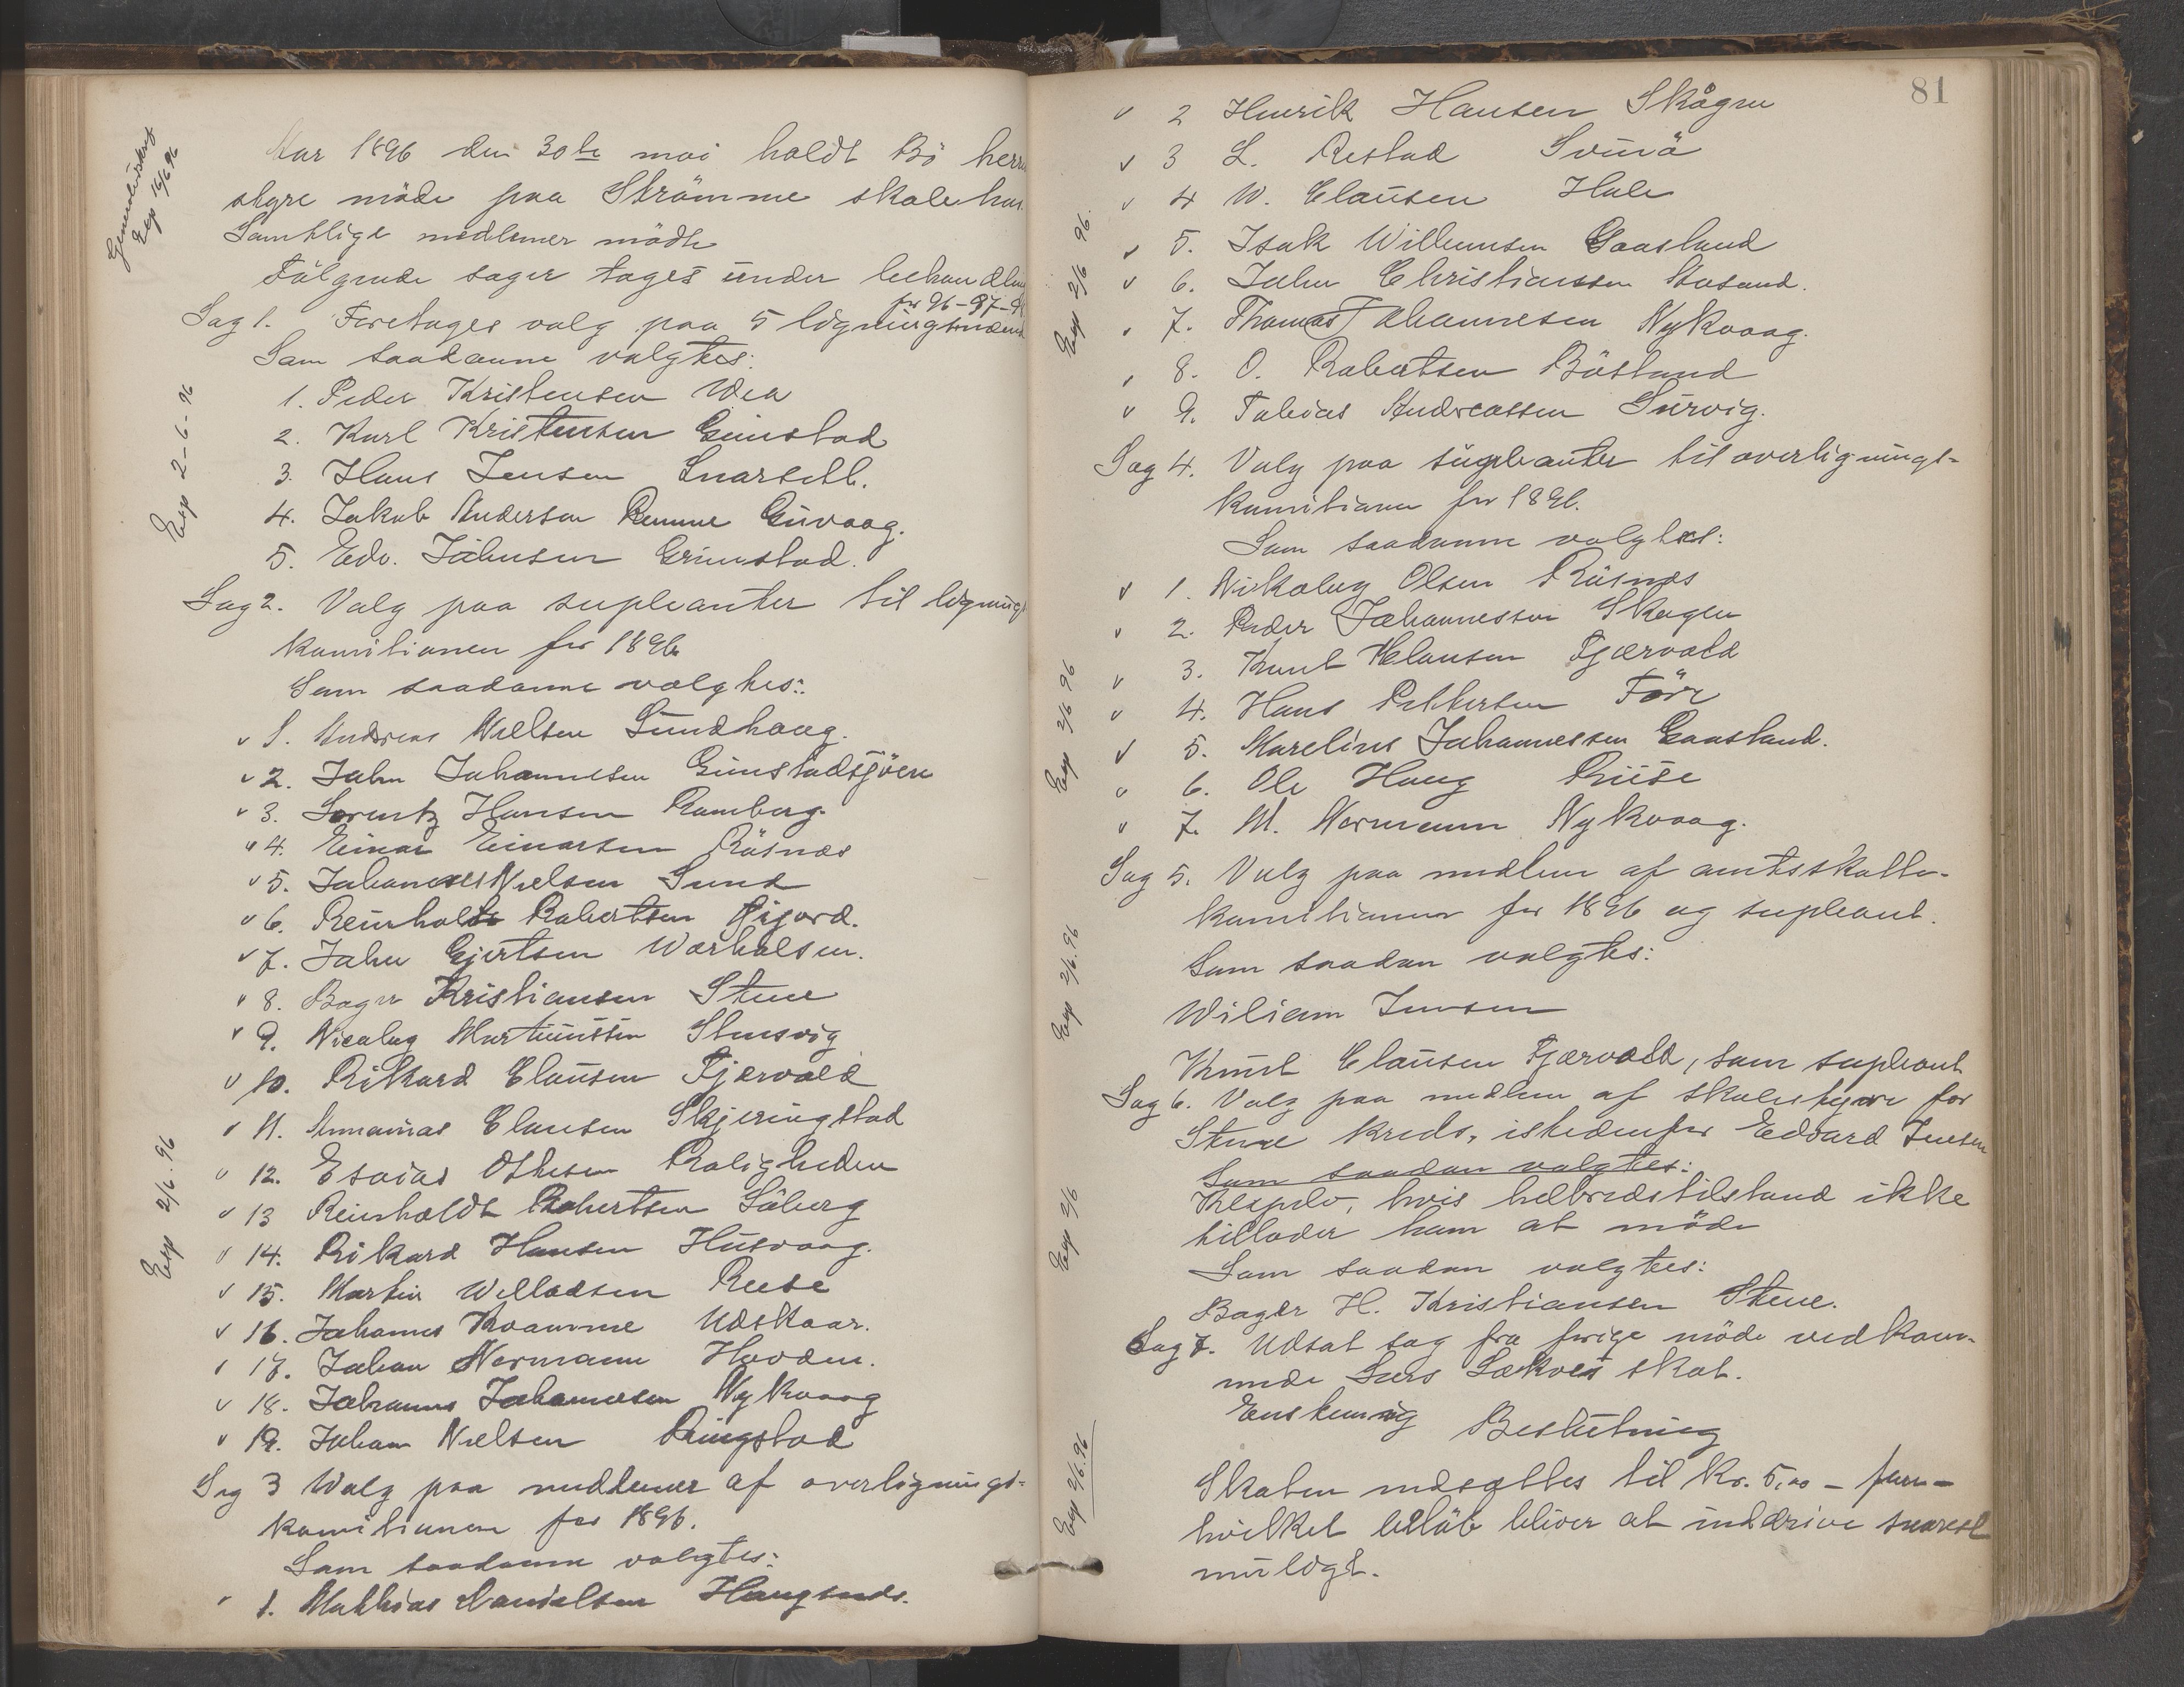 Aar 1896 den 30te mai holdt Bö herre
styre möde paa Strömme skolehus.
Samtlige medlemer mödte
Fölgende sager toges under behandling
for 96-97-9
Sag 1. Foretages valg paa 5 ligningsmænd
Som saadanne valgtes:
1. Peder Kristensen Wea
2. Karl Kristensen Guustad
3. Hans Jensen Snarsetl.
4. Jakob Andersen Remme Guvaag.
5. Edv. Johnsen Grimstad.
Exp 2-6-96
Exp 16/6 96
Sag 2. Valg paa supleanter til lignings
komitionen for 1896
Som saadanne valgtes:
1. Andreas Nielsen Sundhaug.
2. John Johannesen Guustadsjöen
3. Lorentz Hansen Ramberg.
4. Einar Einarsen Röisnæs
5. Johannes Nielsen Sund
6. Reinholdt Robertsen Rijord.
7. John Gjertsen Warholsen.
8. Bager Kristiansen Stene
9. Nicolay Martinussen Stensvig
10. Rikard Clausen Fjærvold
11. Annanias Clausen Skjeringstad
12. Esaias Othesen Roligheden
13 Reinholdt Robertsen Söberg
14. Rikard Hansen Husvaag.
15. Martin Willadsen Reese
16. Johannes Kvamme Udskaar.
17. Johan Normann Hovden.
18. Johannes Johannesen Nykvaag
19. Johan Nielsen Ringstad
Exp 2/6. 96
Sag 3 Walg paa medlemer af overlignings-
komitionen for 1896.
Som saadanne valgtes:
1. Mathias Danielsen Haugsnds.
81
2 Henrik Hansen Skågen
3 L. Restad Svinö
4 W. Clausen Hole
5. Isak Willumsen Gaasland
6. John Christianssen Aasand.
7. Thomas Johannesen Nykvaag.
8. O. Robertsen Böstrand
9. Tobias Andreassen Survig.
Exp 2/6 96.
Sag 4. Valg paa supleanter til overlignings-
komitionen for 1896.
Som saadanne valgtes:
1. Nikolay Olsen Röisnæs
2. Peder Johannessen Skagen
3. Knut Klausen Fjærvold
4. Hans Pettersen Före
5. Marelius Johannessen Gaasland.
6. Ole Haug Riise
7. M. Normann Nykvaag.
Exp 2/6 96
Sag 5. Valg paa medlem af amtsskatte-
komitionen for 1896 og supleant.
Som saadan valgtes:
Wiliam Jensen
Knut Clausen Fjærvold, som supleant
Exp 2/6. 96
Sag 6. Valg paa medlem af skolestyre for
Stene kreds, istedenfor Edvard Jensen
Som saadan valgtes:
Klepelv, hvis helbredstilstand ikke
tillader ham at möde
Som saadan valgtes:
Bager H. Kristiansen Stene.
Exp 2/6
Sag 7. Udsat sag fra forige möde vedkom-
mende Lars Sækves skat.
Enstemig Beslutning
Skaten nedsættes til Kr. 5,00 - fem-
hvilket belöb bliver at inddrive snarest
muligt.
Exp 2/6.96